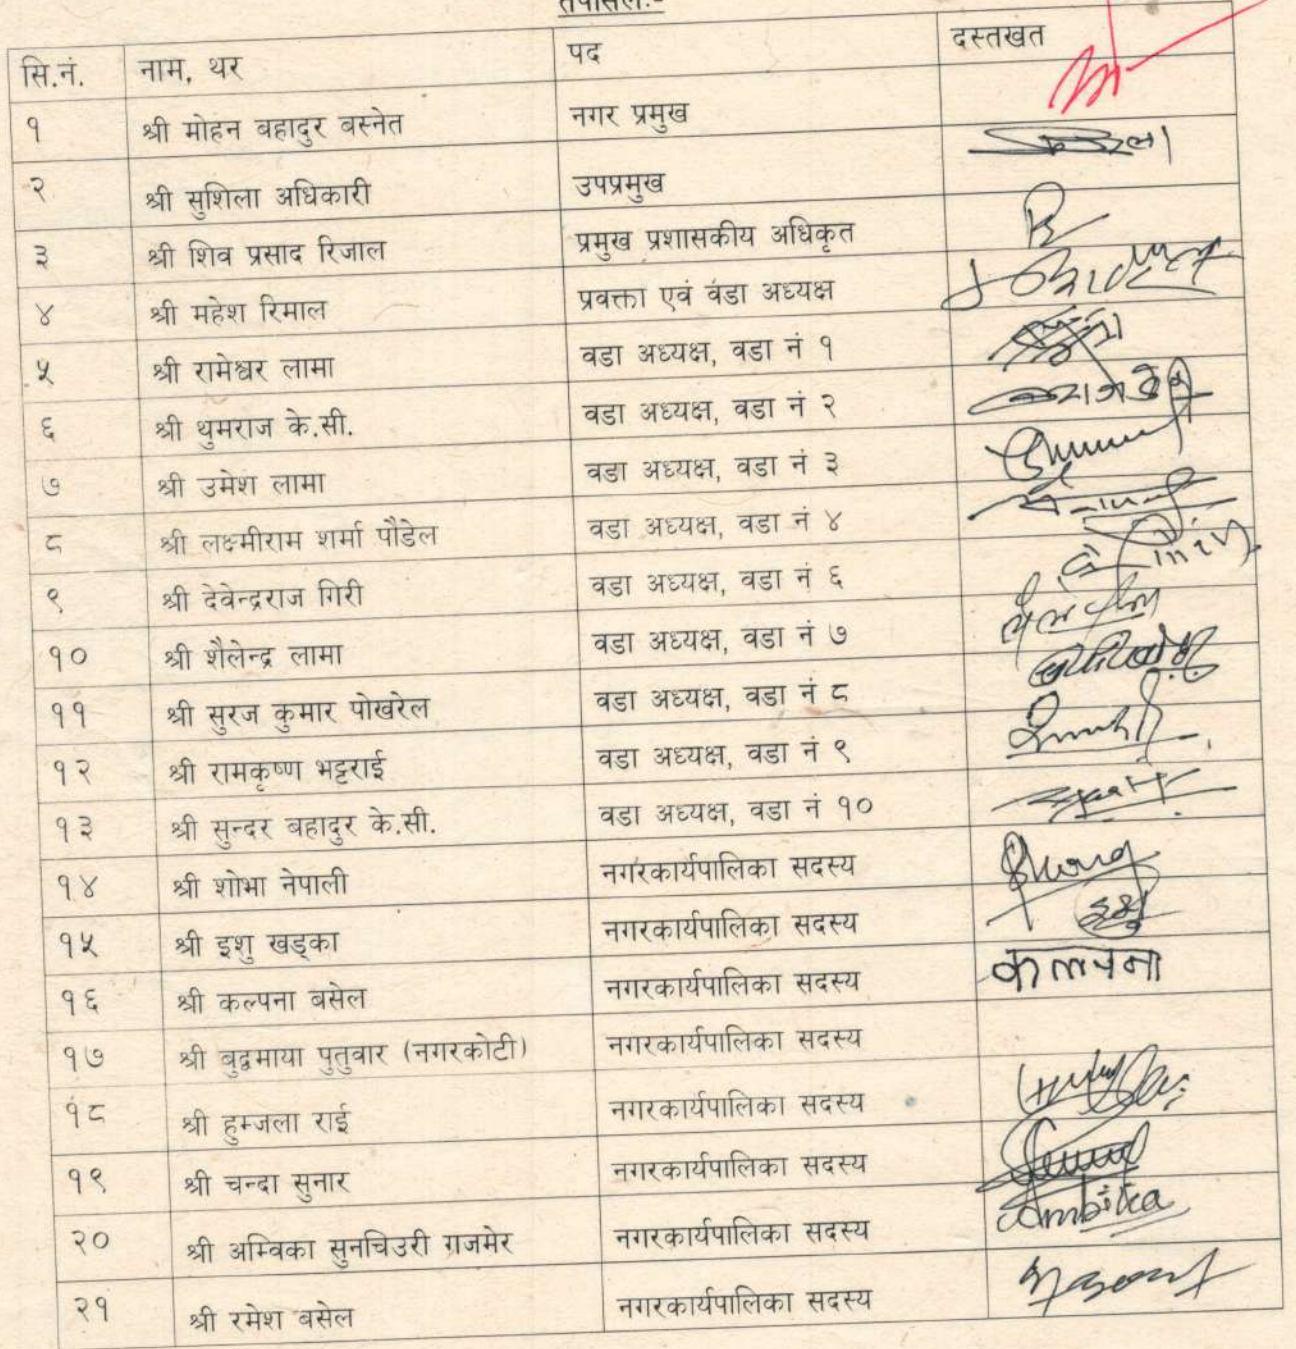 तपसिलः-
सि.नं. नाम, थर पद दस्तखत
१ श्री मोहन बहादुर बस्नेत नगर प्रमुख
२ श्री सुशिला अधिकारी उपप्रमुख
३ श्री शिव प्रसाद रिजाल प्रमुख प्रशासकीय अधिकृत
४ श्री महेश रिमाल प्रवक्ता एवं वडा अध्यक्ष
५ श्री रामेश्वर लामा वडा अध्यक्ष, वडा नं १
६ श्री थुमराज के.सी. वडा अध्यक्ष, वडा नं २
७ श्री उमेश लामा वडा अध्यक्ष, वडा नं ३
८ श्री लक्ष्मीराम शर्मा पौडेल वडा अध्यक्ष, वडा नं ४
९ श्री देवेन्द्रराज गिरी वडा अध्यक्ष, वडा नं ६
१० श्री शैलेन्द्र लामा वडा अध्यक्ष, वडा नं ७
११ श्री सुरज कुमार पोखरेल वडा अध्यक्ष, वडा नं ८
१२ श्री रामकृष्ण भट्टराई वडा अध्यक्ष, वडा नं ९
१३ श्री सुन्दर बहादुर के.सी. वडा अध्यक्ष, वडा नं १०
१४ श्री शोभा नेपाली नगरकार्यपालिका सदस्य
१५ श्री इशु खड्का नगरकार्यपालिका सदस्य
१६ श्री कल्पना बसेल नगरकार्यपालिका सदस्य कल्पना
१७ श्री बुद्वमाया पुतुवार (नगरकोटी) नगरकार्यपालिका सदस्य
१८ श्री हुम्जला राई नगरकार्यपालिका सदस्य
१९ श्री चन्दा सुनार नगरकार्यपालिका सदस्य
२० श्री अम्विका सुनचिउरी ग्रजमेर नगरकार्यपालिका सदस्य Ambika
२१ श्री रमेश बसेल नगरकार्यपालिका सदस्य